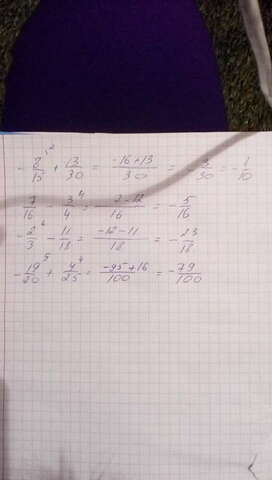 - 8/15 ² + 13/30 = -16+13/30 = - 3/30 = - 1/10
7/16 - 3/4 ⁴ = 7-12/16 = - 5/16
- 2/3 ⁶ - 11/18 = -12-11/18 = - 23/18
- 19/20 ⁵ + 4/25 ⁴ = -95+16/100 = - 79/100